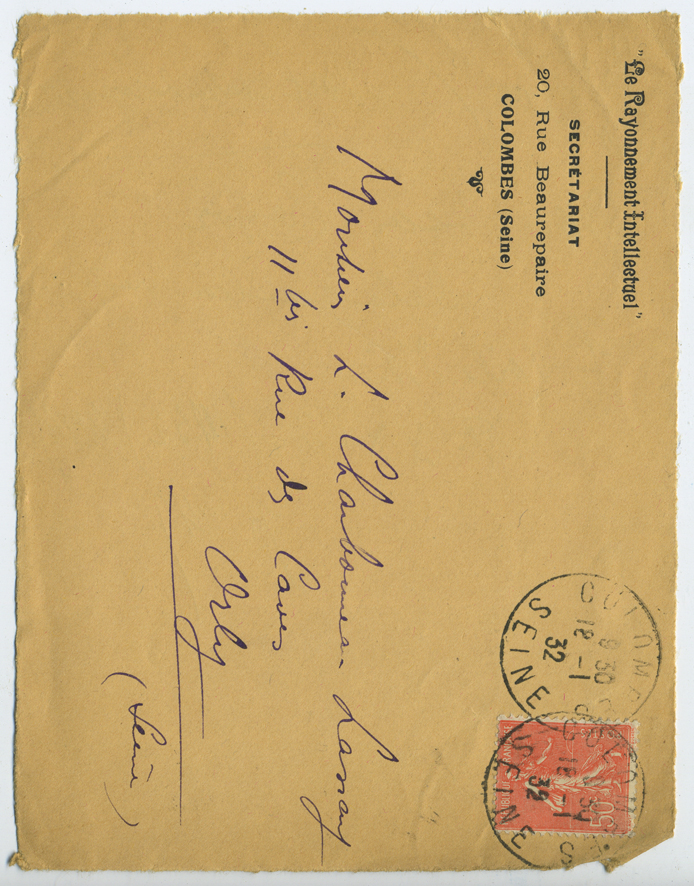 "Le Rayonnement Intellectuel"
SECRÉTARIAT
20, Rue Beaurepaire
COLOMBES (Seine)
COLOMBES
9 30
18 -1
32
SEINE
COLOMBES
18 -1
32
SEINE
50
Monsieur L. Charbonneau-Lassay
11 bis Rue des Caves
Orly
(Seine)